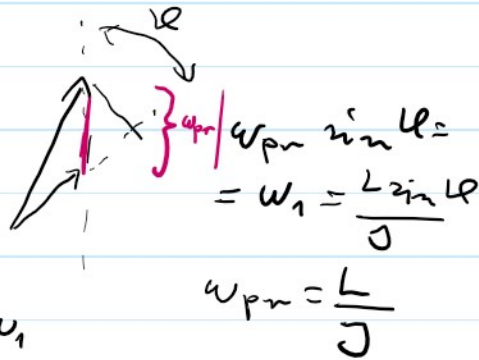 φ
ω_pr | ω_pr sin φ =
= ω₁ = L sin φ / J
ω_pr = L / J